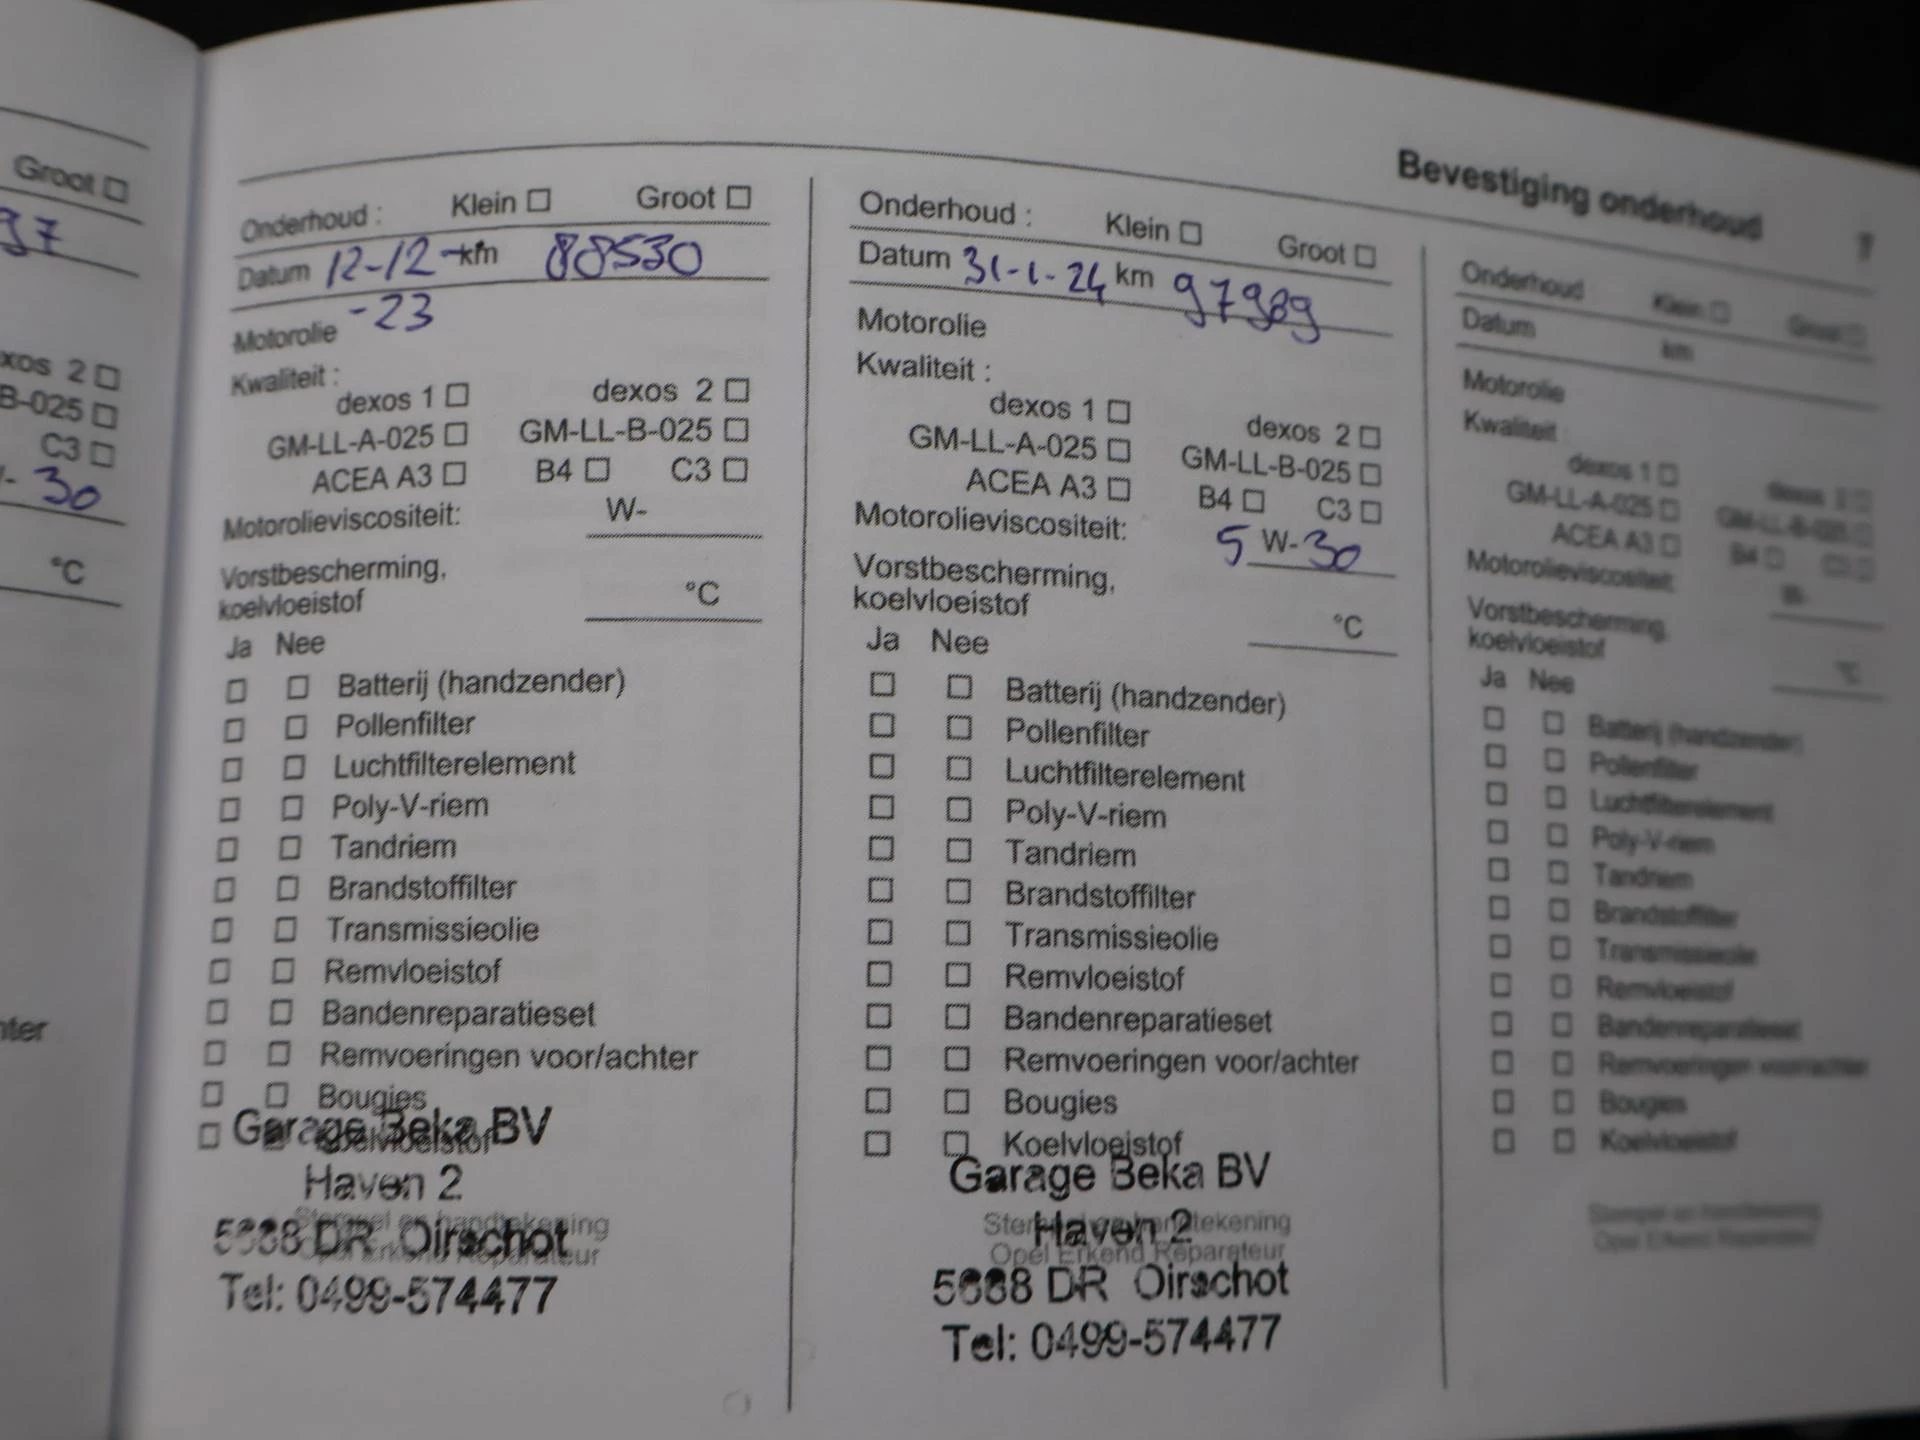 Groot
97
dexos 2
B-025
C3
W- 30
°C
Bevestiging onderhoud
Onderhoud : Klein Groot
Datum 12-12- km 88530
-23
Motorolie
Kwaliteit :
dexos 1 dexos 2
GM-LL-A-025 GM-LL-B-025
ACEA A3 B4 C3
Motorolieviscositeit: W-
Vorstbescherming,
koelvloeistof °C
Ja Nee
Batterij (handzender)
Pollenfilter
Luchtfilterelement
Poly-V-riem
Tandriem
Brandstoffilter
Transmissieolie
Remvloeistof
Bandenreparatieset
Remvoeringen voor/achter
Bougies
Koelvloeistof
Garage Beka BV
Haven 2
Stempel en handtekening
5688 DR Oirschot
Opel Erkend Reparateur
Tel: 0499-574477
Onderhoud : Klein Groot
Datum 31-1-24 km 97989
Motorolie
Kwaliteit :
dexos 1 dexos 2
GM-LL-A-025 GM-LL-B-025
ACEA A3 B4 C3
Motorolieviscositeit: 5 W-30
Vorstbescherming,
koelvloeistof °C
Ja Nee
Batterij (handzender)
Pollenfilter
Luchtfilterelement
Poly-V-riem
Tandriem
Brandstoffilter
Transmissieolie
Remvloeistof
Bandenreparatieset
Remvoeringen voor/achter
Bougies
Koelvloeistof
Garage Beka BV
Stempel en handtekening
Haven 2
Opel Erkend Reparateur
5688 DR Oirschot
Tel: 0499-574477
Onderhoud Klein Groot
Datum km
Motorolie
Kwaliteit :
dexos 1 dexos 2
GM-LL-A-025 GM-LL-B-025
ACEA A3 B4 C3
Motorolieviscositeit: W-
Vorstbescherming,
koelvloeistof °C
Ja Nee
Batterij (handzender)
Pollenfilter
Luchtfilterelement
Poly-V-riem
Tandriem
Brandstoffilter
Transmissieolie
Remvloeistof
Bandenreparatieset
Remvoeringen voor/achter
Bougies
Koelvloeistof
Stempel en handtekening
Opel Erkend Reparateur